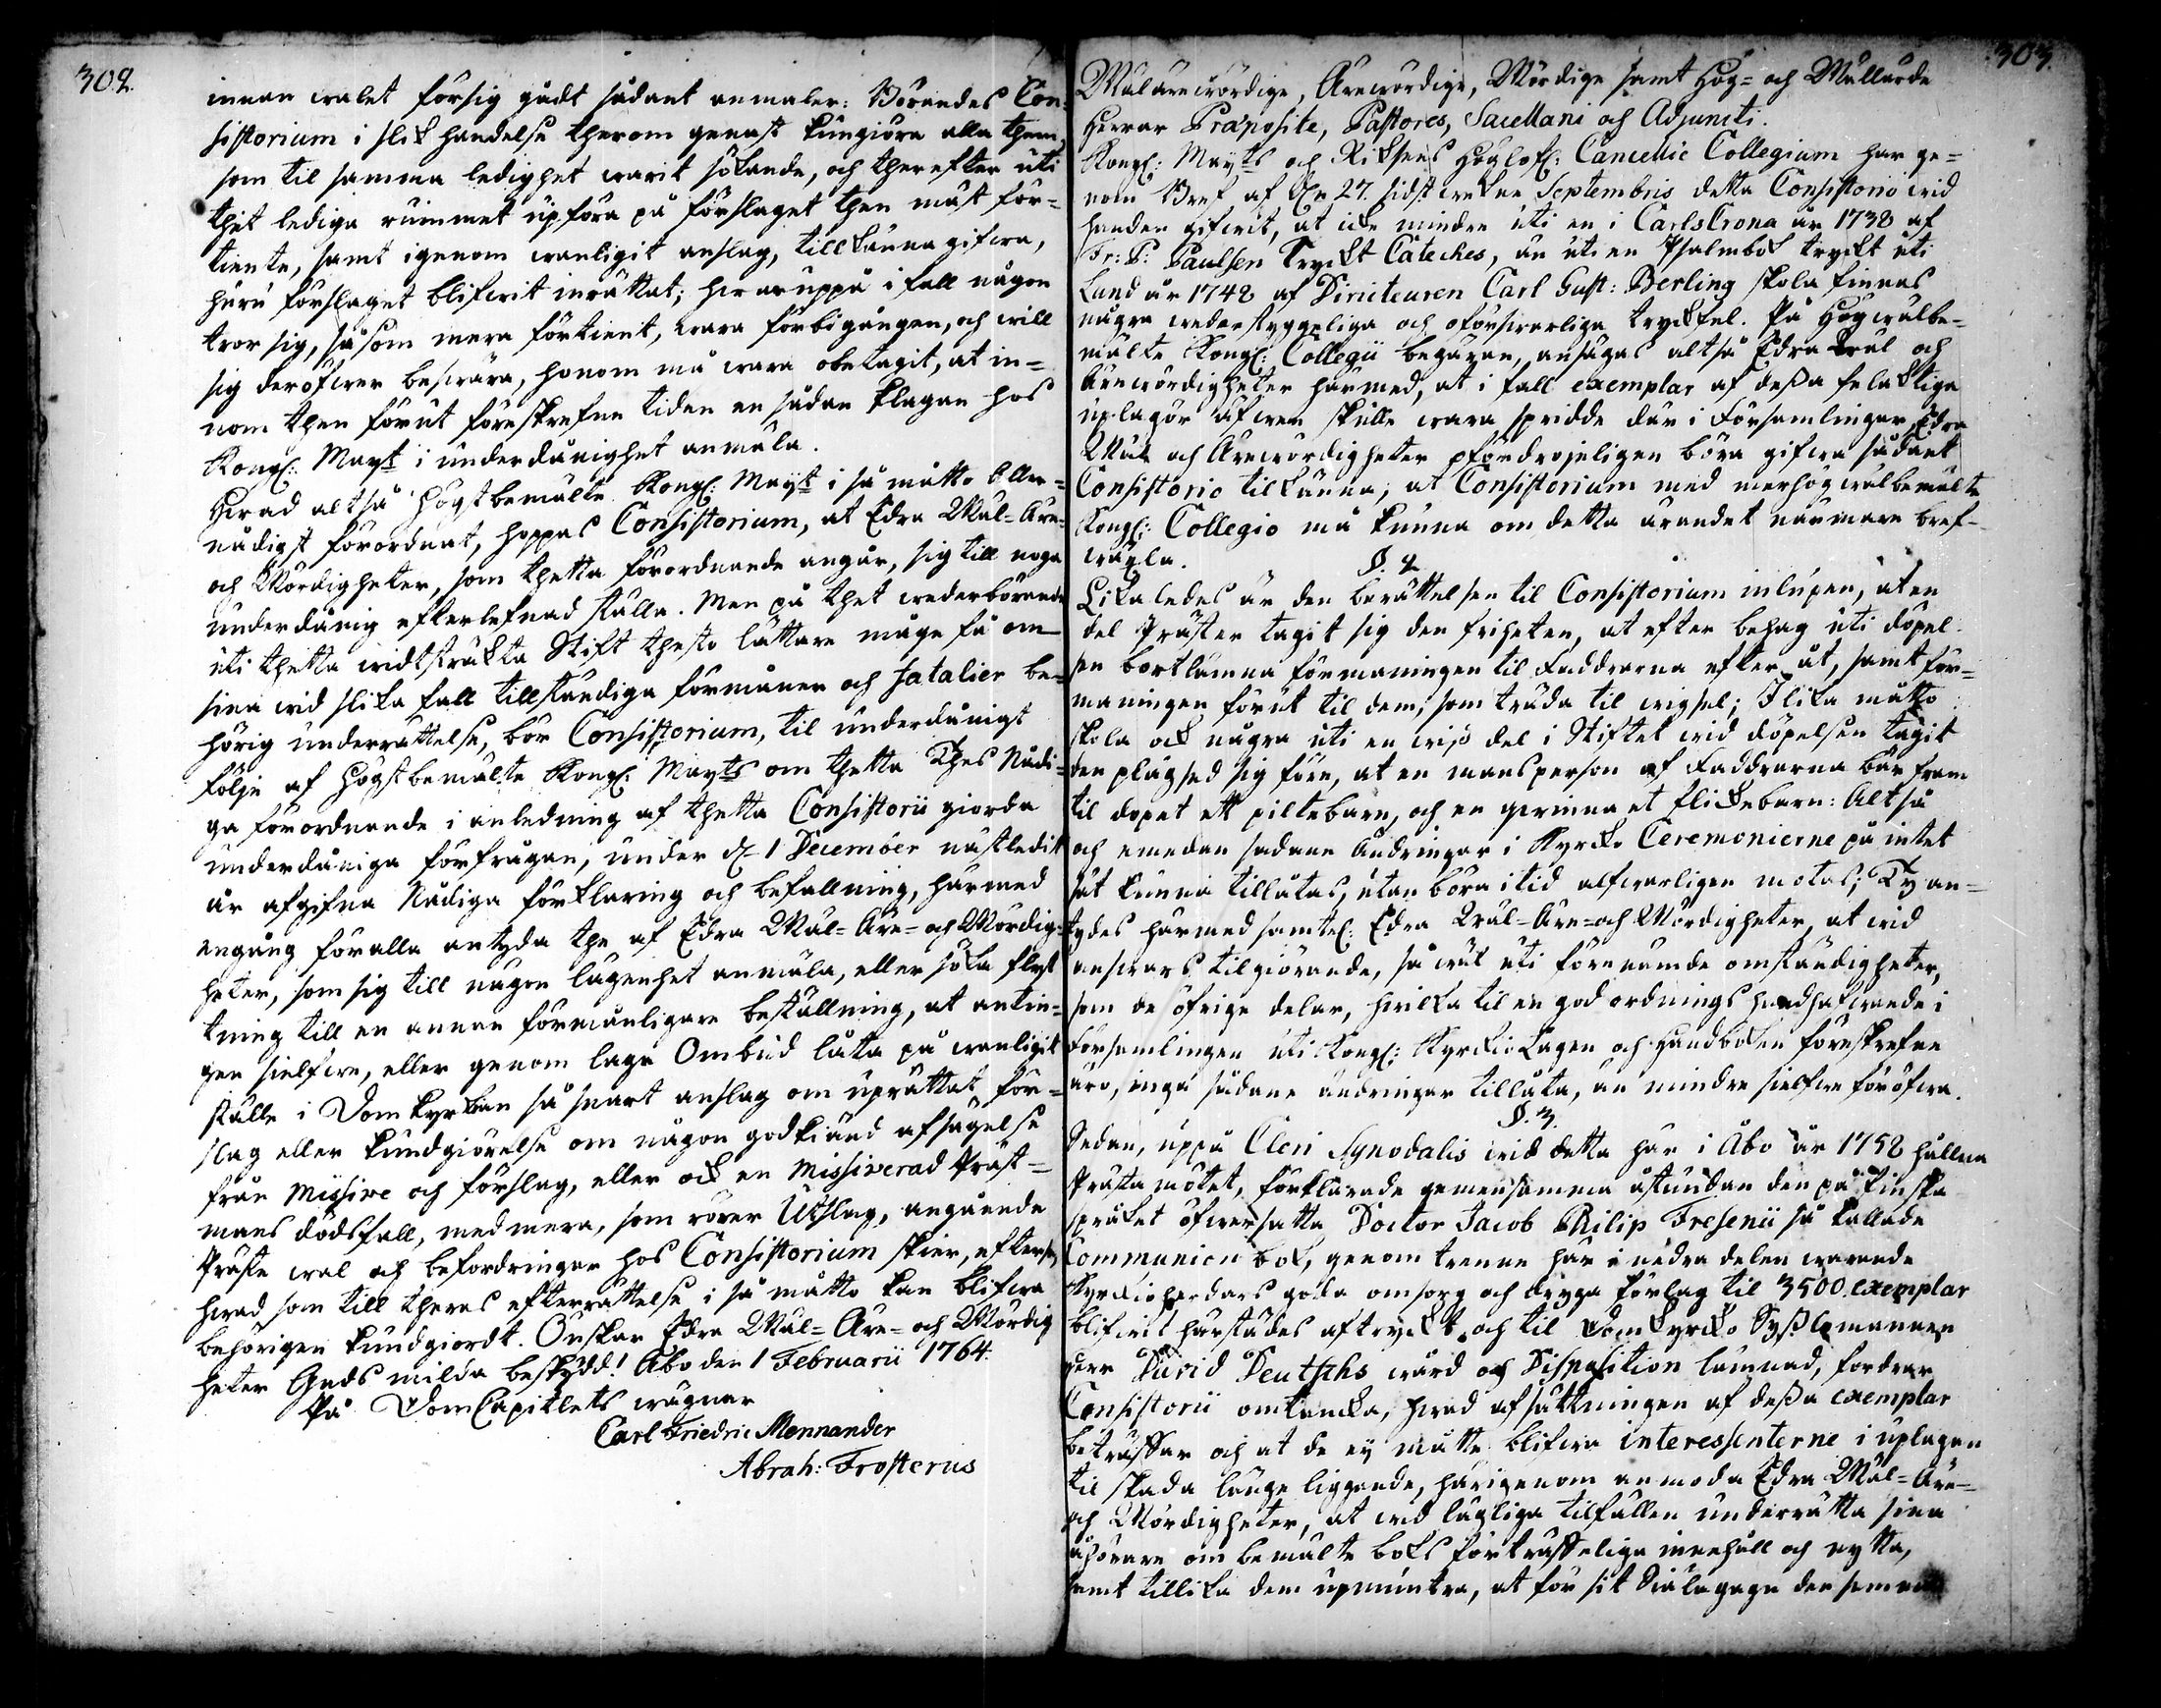 302.
innan walet försig gådt sådant anmäler: Börandes Con-
sistorium i slik händelse therom genast kungiöra alla them,
som til samma ledighet warit sökande, och therefter uti
thet lediga rummet upföra på förslaget then mäst för-
tiente, samt igenom wanligit anslag, tillkänna gifwa,
huru förslaget blifwit inrättat; hwaruppå i fall någon
tror sig, såsom mera förtient, wara förbigången, och will
sig deröfwer beswära, honom må wara obetagit, at in-
nom then förut föreskrefne tiden en sådan klagan hos
Kongl: Mayt i underdånighet anmäla.
Hwad altså högstbemälte Kongl: Mayt i så måtto Aller-
nådigst förordnat, hoppas Consistorium, at Edra Wäl- Äre-
och Wördigheter, som thetta förordnande angår, sig till noga
underdånig efterlefnad ställa. Men på thet wederbörande
uti thetta widtsträkta Stift thesto lättare måge få om
sina wid slika fall tillständiga förmåner och fatalier be-
hörig underrättelse, bör Consistorium, til underdånigst
följe af högstbemälte Kongl: Mayts om thetta Thes Nådi-
ga förordnande i anledning af thetta Consistorii giorda
underdåniga förfrågan, under d. 1 December nästledit
år afgifna Nådiga förklaring och befallning, härmed
engång för alla antyda the af Edra Wäl- Äre- och Wördig-
heter, som sig till någon lägenhet anmäla, eller söka flyt-
tning till en annan förmånligare beställning, at antin-
gen sielfwe, eller genom laga Ombud låta på wanligit
ställe i Domkyrkan så snart anslag om uprättat för-
slag eller kundgiörelse om någon godkiänd afsägelse
från Missive och förslag, eller ock en missiverad Präst-
mans dödsfall, med mera, som rörer Utslag, angående
Präste wal och befordringar hos Consistorium skier, efterse,
hwad som till theras efterrättelse i så måtto kan blifwa
behörigen kundgiordt. Önskar Edra Wäl- Äre- och Wördig
heter Guds milda beskydd! Åbo den 1 Februarii 1764.
På DomCapitlets wägnar
Carl Friedric Mennander
Abrah: Frosterus
303.
Wäl ärewördige, Ärewördige, Wördige samt Hög- och Wällärde
Herrar Præposite, Pastores, Sacellani och Adjuncti.
Kongl: Mayts och Riksens Höglofl: Cancellie Collegium har ge-
nom Bref af den 27. sidst wekne Septembris detta Consistorio wid
handen gifwit, at icke mindre uti en i CarlsCrona år 1738 af
Fr: P: Paulsen Tryckt Cateches, än uti en Psalmbok tryckt uti
Lund år 1748 af Directeuren Carl Gust: Berling skola finnas
några wederstyggeliga och oförswarliga tryckfel. På Högwälbe-
mälte Kongl: Collegii begäran, anságas altså Edra Wäl och
Ärewördigheter härmed, at i fall exemplar af dessa felaktige
uplagor äfwen skulle wara spridde där i Församlingar, Edra
Wäl och Ärewördigheter ofördröjeligen böra gifwa sådant
Consistorio tilkänna, at Consistorium med merhögwälbemälte
Kongl: Collegio må kunna om detta ärendet närmare bref-
wäxla.
§. 2.
Lika ledes är den berättelsen til Consistorium inlupen, at en
del Präster tagit sig den friheten, at efter behag uti döpel-
sen bortlämna förmaningen til Faddrarna efteråt, samt för-
maningen förut til dem, som träda til wigsel; I lika måtto
skola ock några uti en wiss del i Stiftet wid döpelsen tagit
den plägsed sig före, at en mansperson af Faddrarna bär fram
til dopet ett piltebarn, och en qwinna et flickebarn: Altså
och emedan sådane ändringar i Kyrcko Ceremonierne på intet
sät kunna tillåtas, utan böra i tid alfwarligen motas; Ty an-
tydes härmed samtel: Edra Wäl- Äre- och Wördigheter, at wid
answars tilgiörande, så wäl uti förenämde omständigheter,
som de öfrige delar, hwilka til en god ordnings handhafwande i
Församlingen uti Kongl: KyrckioLagen och Handboken föreskrefne
äro, inga sådane ändringar tillåta, än mindre sielfwe föröfwa.
§. 3.
Sedan, uppå Cleri Synodalis wid detta här i Åbo år 1758 hållna
Prästa mötet, förklarade gemensamma åstundan den på Finska
språket öfwersatta Doctor Jacob Philip Fresenii så kallade
Communion bok, genom trenne här i nedra delen warande
Kyrckioherdars goda omsorg och dryga förlag til 3500 exemplar
blifwit härstädes aftryckt och til Domkyrcko Sysslomannen
Herr David Deutschs wård och Disposition lämnad, fordrar
Consistorii omtancka, hwad afsättningen af dessa exemplar
beträffar och at de ey måtte blifwa interessenterne i uplagan
til skada länge liggande, härigenom anmoda Edra Wäl- Äre-
och Wördigheter, at wid lägliga tilfällen underrätta sina
åhörare om bemälte boks förträffeliga innehåll och nytta,
samt tillika dem upmuntra, at för sit Siälagagn den